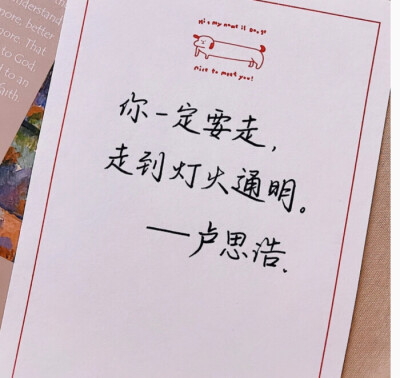 Hi ~ my name is Do:go
nice to meet you!
你一定要走，
走到灯火通明。
——卢思浩.
understand
better
more. That
to God;
d to an
aith